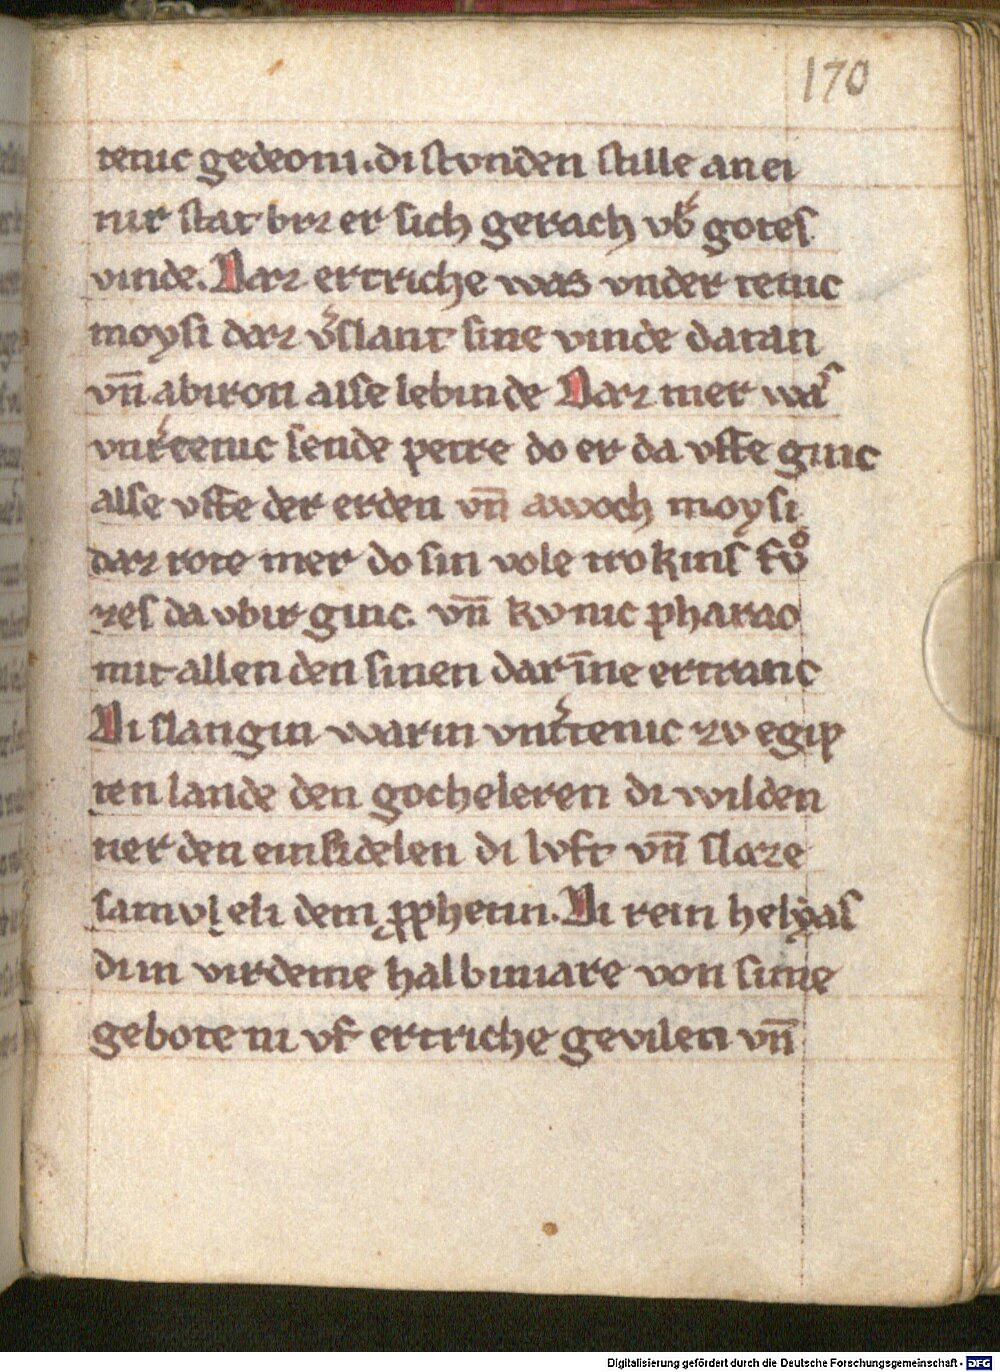 170
tenic gedeoni. di stvnden stille an ei
nir stat biz er sich gerach vb᷎ gotes
vinde. Daz ertriche was vnder tenic
moysi daz v᷎slant sine vinde datan
vn̄ abiron alse lebinde Daz mer was
vnd᷎tenic sende petre do er da vffe ginc
alse vffe der erden vn̄ awoch moysi
daz rote mer do sin vole trokins fvͦ
zes da vbir ginc. vn̄ kvnic pharao
mit allen den sinen dar īne ertranc
Di slangin warin vnt᷎tenic zv egip
ten lande den gocheleren di wilden
tier den einsidelen di lvft vn̄ sloze
samvl eli dem pphetin. Di rein helyas
di in virdeme halbin iare von sime
gebote ni vf ertriche gevilen vn̄
Digitalisierung gefördert durch die Deutsche Forschungsgemeinschaft - DFG